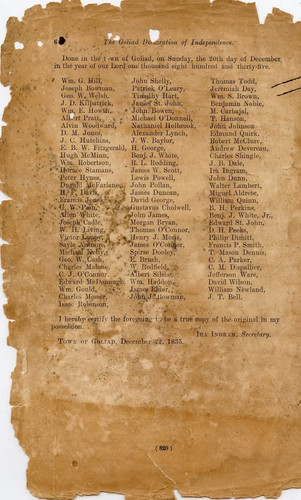 The Goliad Declaration of Independence.
Done in the town of Goliad, on Sunday, the 20th day of December
in the year of our Lord one thousand eight hundred and thirty-five.
Wm. G. Hill, John Shelly, Thomas Todd,
Joseph Bowman, Patrick O'Leary, Jeremiah Day,
Geo. W. Welsh, Timothy Hart, Wm. S. Brown,
J. D. Kilpatrick, James St. John, Benjamin Noble,
Wm. E. Howth, John Bowen, M. Carbajal,
Albert Pratt, Michael O'Donnell, T. Hanson,
Alvin Woodward, Nathaniel Holbrook, John Johnson
D. M. Jones, Alexander Lynch, Edmund Quirk,
J. C. Hutchins, J. W. Baylor, Robert McClure,
E. B. W. Fitzgerald, H. George, Andrew Devereau,
Hugh McMinn, Benj. J. White, Charles Shingle,
Wm. Robertson, R. L. Redding, J. B. Dale,
Horace Stamans, James W. Scott, Ira Ingram,
Peter Hynes, Lewis Powell, John Dunn,
Donald McFarlane, John Pollan, Walter Lambert,
H. F. Davis, James Duncan, Miguel Aldrete,
Francis Jones, David George, William Quinn,
G. W. Paine, Gustavus Cholwell, B. H. Perkins,
Allen White, John James, Benj. J. White, Jr.,
Joseph Cadle, Morgan Bryan, Edward St. John,
W. H. Living, Thomas O'Connor, D. H. Peeks,
Victor Loupy, Henry J. Morris, Philip Dimitt,
Sayle Antoine, James O'Connor, Francis P. Smith,
Michael Kelly, Spirse Dooley, T. Mason Dennis,
Geo. W. Cash, E. Brush, C. A. Parker,
Charles Malone, W. Redfield, C. M. Despallier,
C. J. O'Connor, Albert Silsbe, Jefferson Ware,
Edward McDonough, Wm. Haddon, David Wilson,
Wm. Gould, James Elder, William Newland,
Charles Messer, John J. Bowman, J. T. Bell.
Isaac Robinson,
I hereby certify the foregoing to be a true copy of the original in my
possession.
Ira Ingram, Secretary.
Town of Goliad, December 22, 1835.